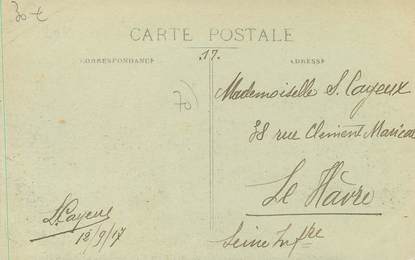 30 €
CARTE POSTALE
CORRESPONDANCE
.17.
ADRESSE
70
Mademoiselle S. Cayeux
38 rue Clement Marical
Le Hâvre
Seine Infre
Cayeux
12/9/17